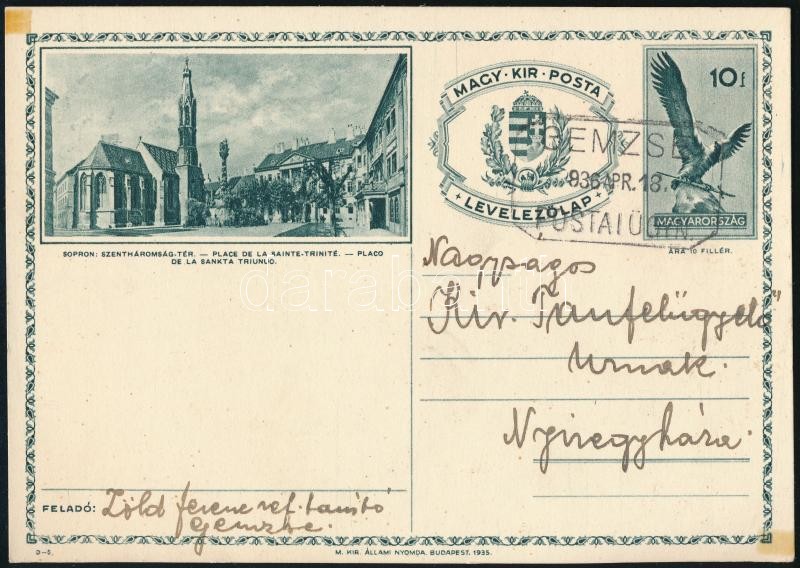 MAGY · KIR · POSTA
LEVELEZŐLAP
10f
MAGYARORSZÁG
ÁRA 10 FILLÉR.
GEMZSE
936 APR. 18.
POSTAI ÜGYN
SOPRON: SZENTHÁROMSÁG-TÉR. — PLACE DE LA SAINTE-TRINITÉ. — PLACO
DE LA SANKTA TRIUNUO.
Nagyságos
Kir. Tanfelügyelő
Urnak.
Nyiregyháza.
FELADÓ: Zöld ferenc ref. tanitó
Gemzse.
D-5.
M. KIR. ÁLLAMI NYOMDA. BUDAPEST. 1935.